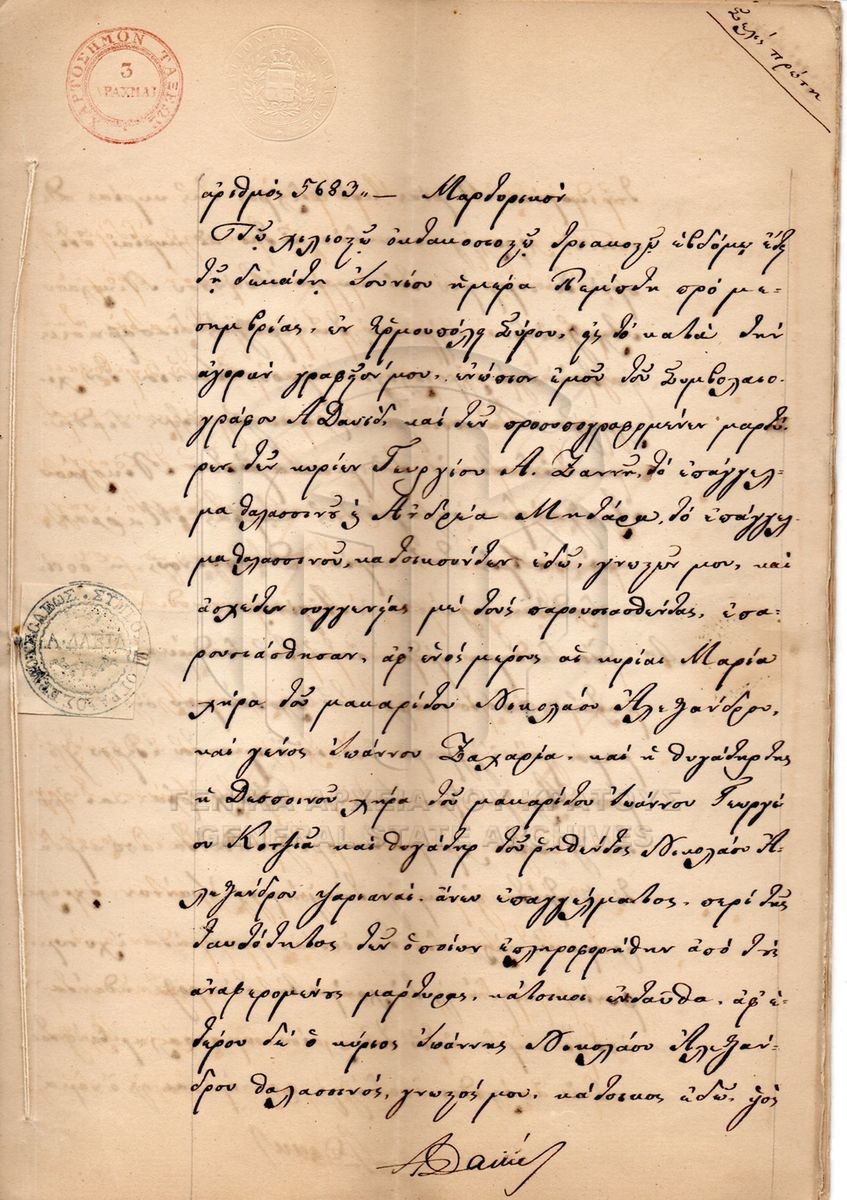 Σελίς πρώτη
ΧΑΡΤΟΣΗΜΟΝ ΤΑΞΕΩΣ
3
ΔΡΑΧΜΑΙ
ἀριθμός 5683,, — Μαρτυρικόν
Τῷ χιλιοστῷ ὀκτακοσιοστῷ τριακοστῷ ἑβδόμῳ ἔτει
τῇ δεκάτῃ Ἰουνίου ἡμέρᾳ Πέμπτῃ πρό με-
σημβρίας, ἐν Ἑρμουπόλῃ Σύρου, εἰς τό κατά τήν
ἀγοράν γραφεῖόν μου, ἐνώπιον ἐμοῦ τοῦ Συμβολαιο-
γράφου Α Δανιήλ, καί τῶν προσυπογραφομένων μαρτύ-
ρων, τῶν κυρίων Γεωργίου Α. τό ἐπάγγελ-
μα θαλασσινοῦ Ἀνδρέα τό ἐπάγγελ
μα θαλασσινοῦ, κατοικούντων ἐδῶ, γνωστῶν μου, καί
ἀσχέτων συγγενείας μέ τούς παρουσιασθέντας, ἐπα-
ρουσιάσθησαν, ἀφ' ἑνός μέρους αἱ κυρίαι Μαρία
χήρα τοῦ μακαρίτου Νικολάου Ἀλεξάνδρου,
καί γένος Ἰωάννου Ζαχαρία, καί ἡ θυγάτηρ της
ἡ Δεσποινοῦ χήρα τοῦ μακαρίτου Ἰωάννου Γεωργί
ου καί θυγάτηρ τοῦ ῥηθέντος Νικολάου Ἀ-
λεξάνδρου ψαριαναί, ἄνευ ἐπαγγέλματος, περί τῆς
ταυτότητος τῶν ὁποίων ἐπληροφορήθην ἀπό τούς
ἀναφερομένους μάρτυρας, κάτοικοι ἐνταῦθα, ἀφ' ἑ-
τέρου δέ ὁ κύριος Ἰωάννης Νικολάου Ἀλεξάν-
δρου θαλασσινός, γνωστός μου, κάτοικος ἐδῶ, υἱός
Α Δανιήλ
ΓΕΝΙΚΑ ΑΡΧΕΙΑ ΤΟΥ ΚΡΑΤΟΥΣ
GENERAL STATE ARCHIVES